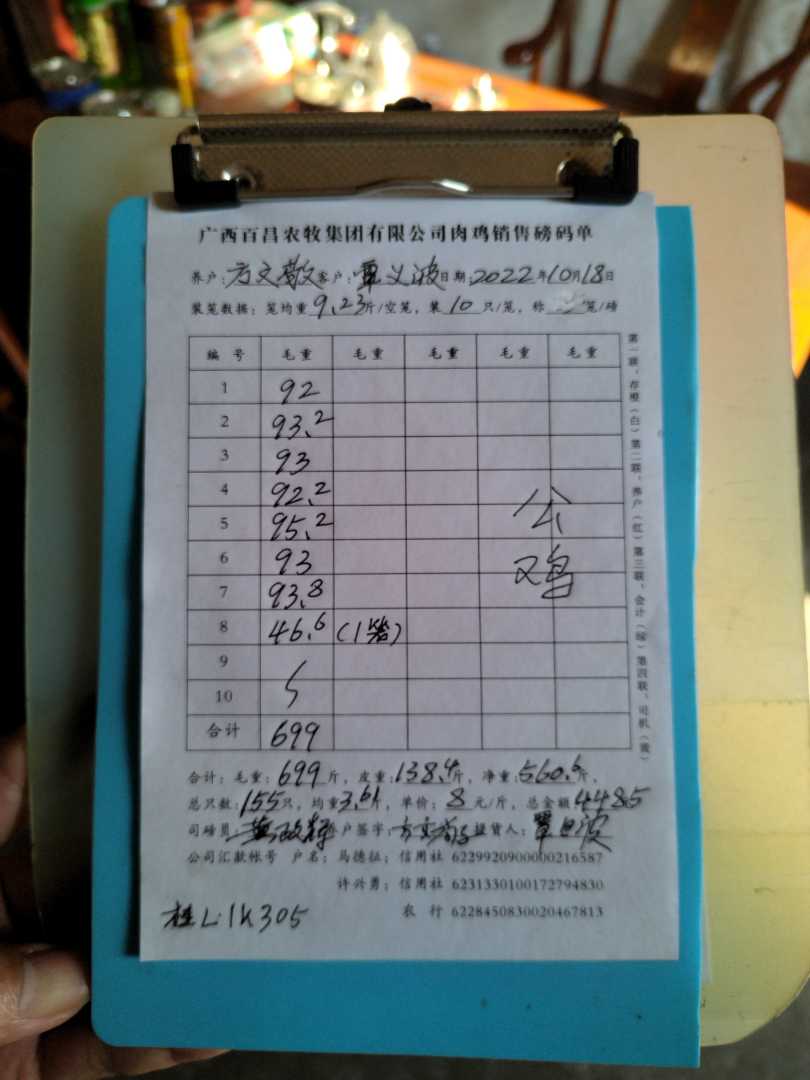 广西百昌农牧集团有限公司肉鸡销售磅码单
养户：方文敬 客户：覃义波 日期：2022年10月18日
装笼数据：笼均重9.23斤/空笼，装10只/笼，称 笼/磅
编号 毛重 毛重 毛重 毛重 毛重
1 92
2 93.2
3 93
4 92.2
5 95.2
6 93
7 93.8
8 46.6 (1笼)
9
10
合计 699
公
鸡
合计：毛重：699斤，皮重：138.4斤，净重：560.6斤，
总只数：155只，均重3.61斤，单价：8元/斤，总金额4485
司磅员： 养户签字：方文敬 提货人：覃义波
公司汇款帐号 户名：马德征；信用社 6229920900000216587
许兴勇；信用社 6231330100172794830
农行 6228450830020467813
桂L:1K305
第一联、存根（白）第二联、养户（红）第三联、会计（绿）第四联、司机（黄）